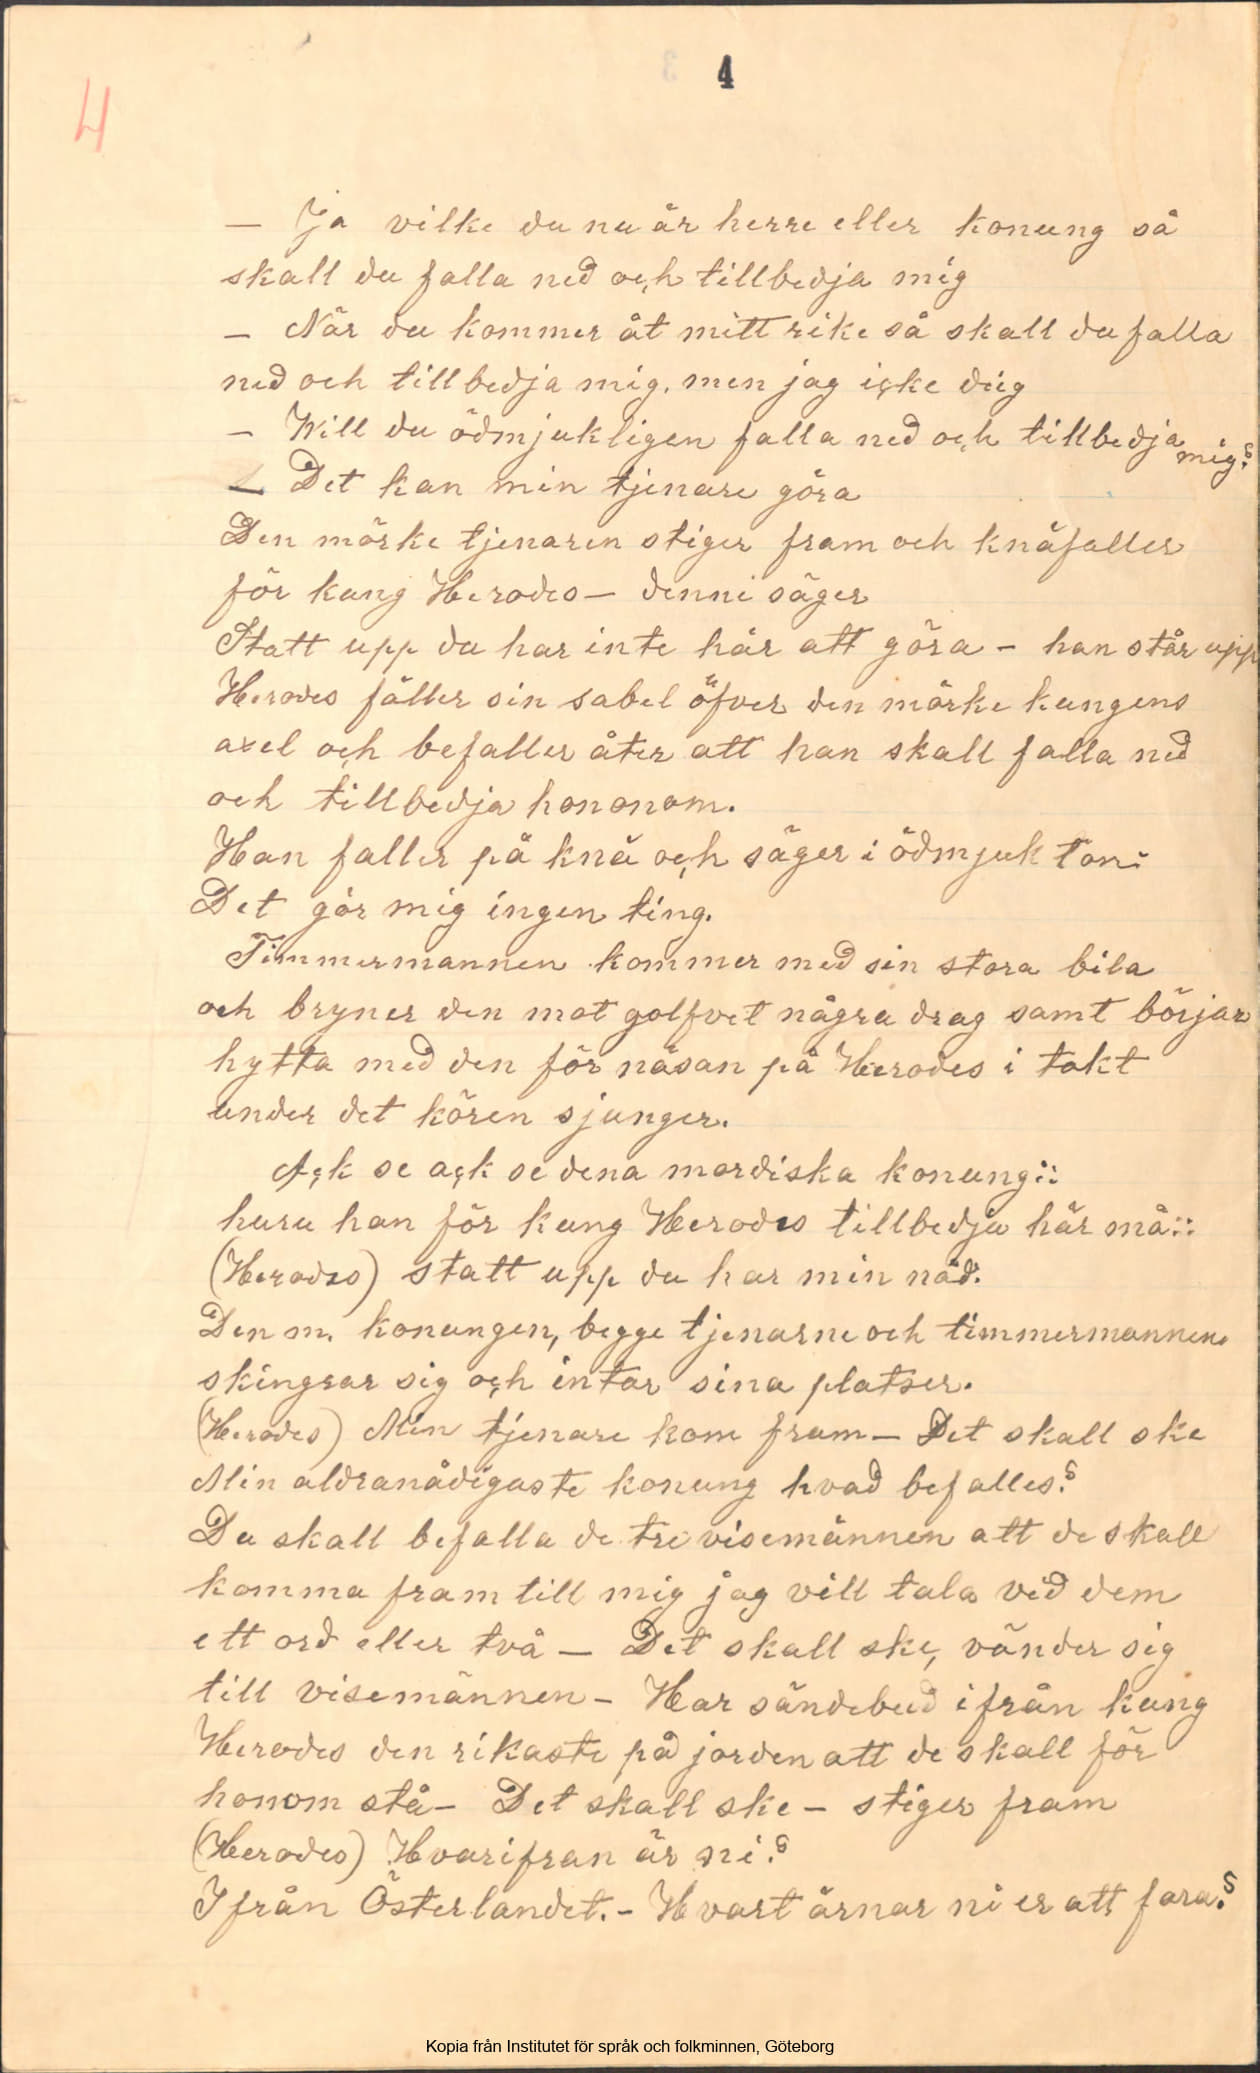 4
4
— Ja vilke du nu är herre eller konung så
skall du falla ned och tillbedja mig
— När du kommer åt mitt rike så skall du falla
ned och tillbedja mig, men jag icke dig
— Will du ödmjukligen falla ned och tillbedja mig?
— Det kan min tjenare göra
Den mörke tjenaren stiger fram och knäfaller
för kung Herodes — denne säger
Statt upp du har inte här att göra — han står upp
Herodes fäller sin sabel öfver den mörke kungens
axel och befaller åter att han skall falla ned
och tillbedja hononom.
Han faller på knä och säger i ödmjuk ton:
Det gör mig ingen ting.
Timmermannen kommer med sin stora bila
och bryner den mot golfvet några drag samt börjar
hytta med den för näsan på Herodes i takt
under det kören sjunger.
Ack se ack se dena mordiska konung::
huru han för kung Herodes tillbedja här må::
(Herodes) statt upp du har min nåd.
Den m. konungen, begge tjenarne och timmermannen
skingrar sig och intar sina platser.
(Herodes) Min tjenare kom fram — Det skall ske
Min aldranådigaste konung hvad befalles?
Du skall befalla de tre visemännen att de skall
komma fram till mig jag vill tala ved dem
ett ord eller två — Det skall ske, vänder sig
till visemännen — Har sändebud ifrån kung
Herodes den rikaste på jorden att de skall för
honom stå — Det skall ske — stiger fram
(Herodes) Hvarifran är ni?
Ifrån Österlandet. — Hvart ärnar ni er att fara?
Kopia från Institutet för språk och folkminnen, Göteborg